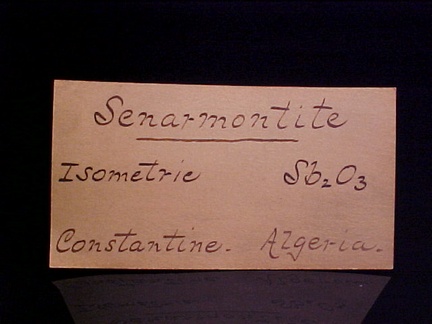 Senarmontite
Isometric Sb₂O₃
Constantine. Algeria.